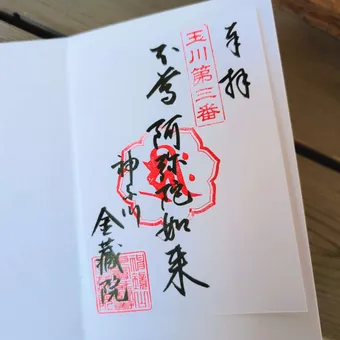 奉拝
玉川第三番
本尊 阿弥陀如来
神子川
金蔵院